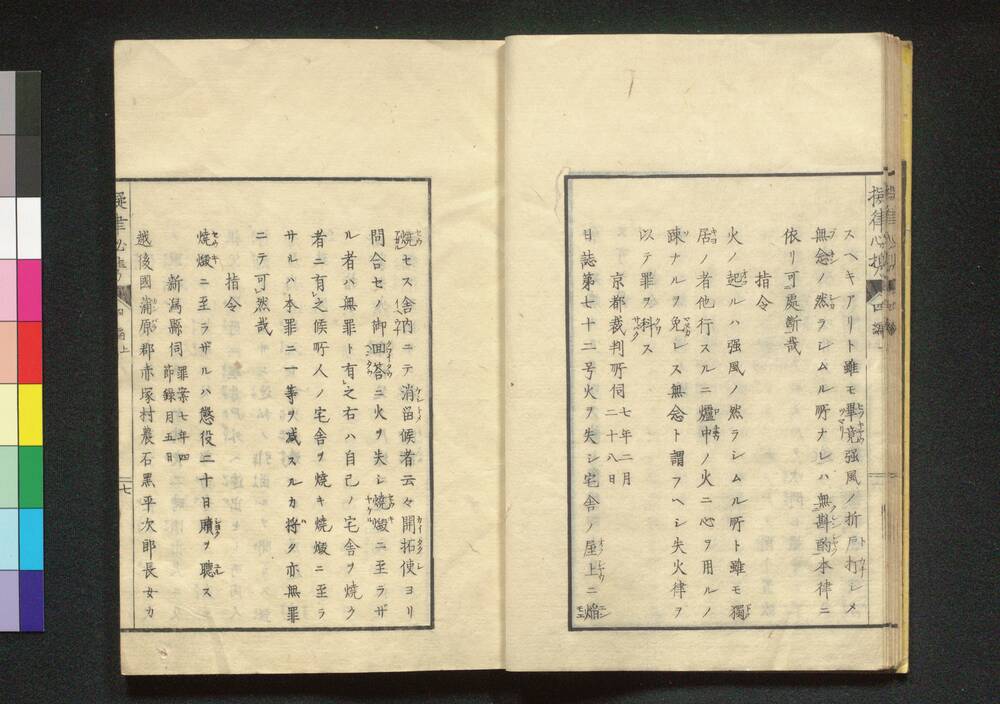 スヘキアリト雖モ畢竟強風ノ折戸打シメ
無念ノ然ラシムル所ナレハ無斟酌本律ニ
依リ可處斷哉
指令
火ノ起ルハ强風ノ然ラシムル所ト雖モ獨
居ノ者他行スルニ爐中ノ火ニ心ヲ用ルノ
疎ナルヲ免レス無念ト謂フヘシ失火律ヲ
以テ罪ヲ科ス
京都裁判所伺 七年二月二十八日
日誌第七十二号火ヲ失シ宅舎ノ屋上ニ焔
燒セス舎内ニテ消留候者云々開拓使ヨリ
問合セノ御回荅ニ火ヲ失シ燒燬ニ至ラザ
ル者ハ無罪ト有之右ハ自己ノ宅舎ヲ燒ク
者ニ有之候所人ノ宅舎ヲ燒キ燒燬ニ至ラ
サルハ本罪ニ一等ヲ减スルカ将タ亦無罪
ニテ可然哉
指令
燒燬ニ至ラザルハ懲役二十日贖ヲ聴ス
新潟縣伺 罪案七年四月五日節録
越後國蒲原郡赤塚村農石黑平次郎長女カ
四編上
七